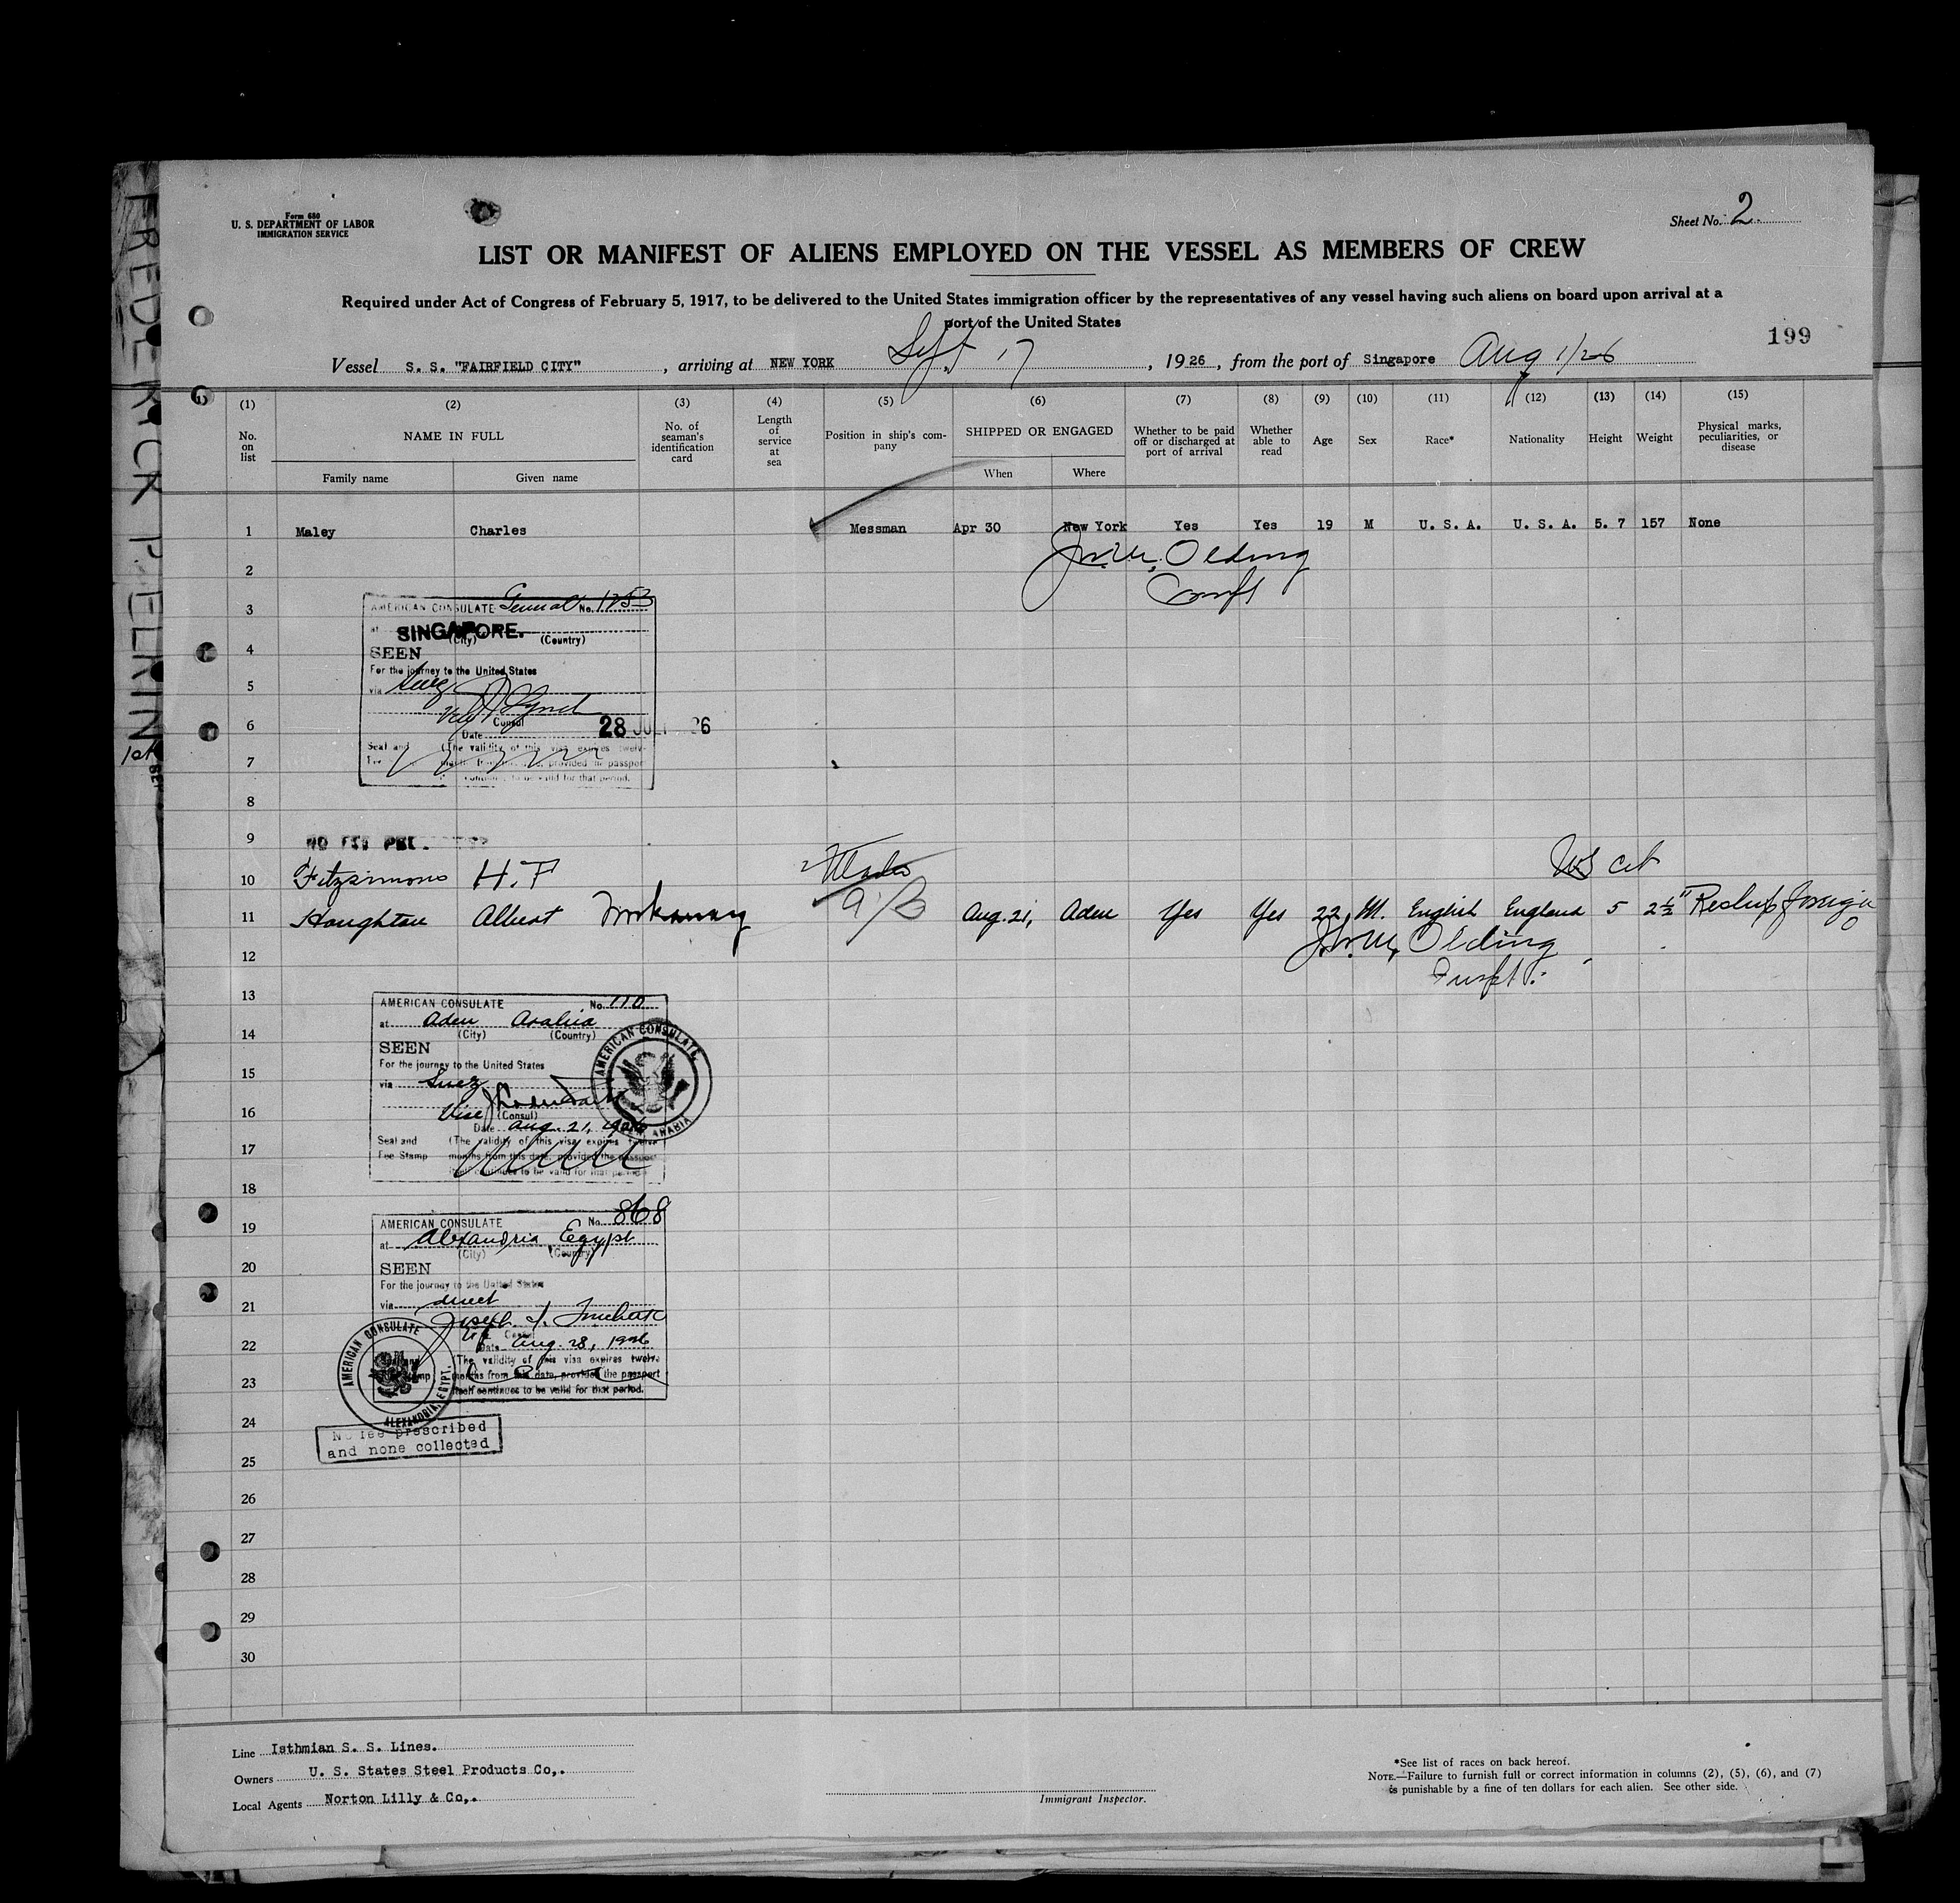 FREDERICK PELRIN
1st
Form 680
U. S. DEPARTMENT OF LABOR
IMMIGRATION SERVICE
Sheet No. 2
LIST OR MANIFEST OF ALIENS EMPLOYED ON THE VESSEL AS MEMBERS OF CREW
Required under Act of Congress of February 5, 1917, to be delivered to the United States immigration officer by the representatives of any vessel having such aliens on board upon arrival at a
port of the United States
199
Vessel S. S. "FAIRFIELD CITY", arriving at NEW YORK Sept 17, 1926, from the port of Singapore Aug 1/26
(1) (2) (3) (4) (5) (6) (7) (8) (9) (10) (11) (12) (13) (14) (15)
No. on list
NAME IN FULL
Family name Given name
No. of seaman's identification card
Length of service at sea
Position in ship's company
SHIPPED OR ENGAGED
When Where
Whether to be paid off or discharged at port of arrival
Whether able to read
Age Sex Race* Nationality Height Weight
Physical marks, peculiarities, or disease
1 Maley Charles Messman Apr 30 New York Yes Yes 19 M U. S. A. U. S. A. 5. 7 157 None
2
Jn. M. Olding
3
AMERICAN CONSULATE General No. 1253
at SINGAPORE.
(City) (Country)
4
SEEN
For the journey to the United States
5
via Suez
Vice Consul
6
Date 28 JUL 26
Seal and Fee (The validity of this visa expires twelve
7
months from this date, provided the passport
continues to be valid for that period.
8
9
NO FEE PRESCRIBED
10 Fitzsimons H. F US Cit
11 Houghton Albert Workaway A/B Aug. 21, Aden Yes Yes 22 M. English England 5 2½" Reship foreign
Jn. M. Olding
12
Inspt.
13
AMERICAN CONSULATE No. 110
at Aden Arabia
14
(City) (Country)
SEEN
For the journey to the United States
15
via Suez
16
Vice (Consul)
Date Aug. 21, 1926
Seal and Fee Stamp (The validity of this visa expires twelve
17
months from this date, provided the passport
itself continues to be valid for that period.
AMERICAN CONSULATE, ADEN, ARABIA
18
19
AMERICAN CONSULATE No. 868
at Alexandria, Egypt
(City) (Country)
20
SEEN
For the journey to the United States
21
via direct
22
Date Aug. 28, 1926
(The validity of this visa expires twelve
23
months from this date, provided the passport
itself continues to be valid for that period.
AMERICAN CONSULATE ALEXANDRIA, EGYPT.
24
No fee prescribed
and none collected
25
26
27
28
29
30
Line Isthmian S. S. Lines.
Owners U. S. States Steel Products Co,.
Local Agents Norton Lilly & Co,.
Immigrant Inspector.
*See list of races on back hereof.
NOTE.—Failure to furnish full or correct information in columns (2), (5), (6), and (7)
is punishable by a fine of ten dollars for each alien. See other side.